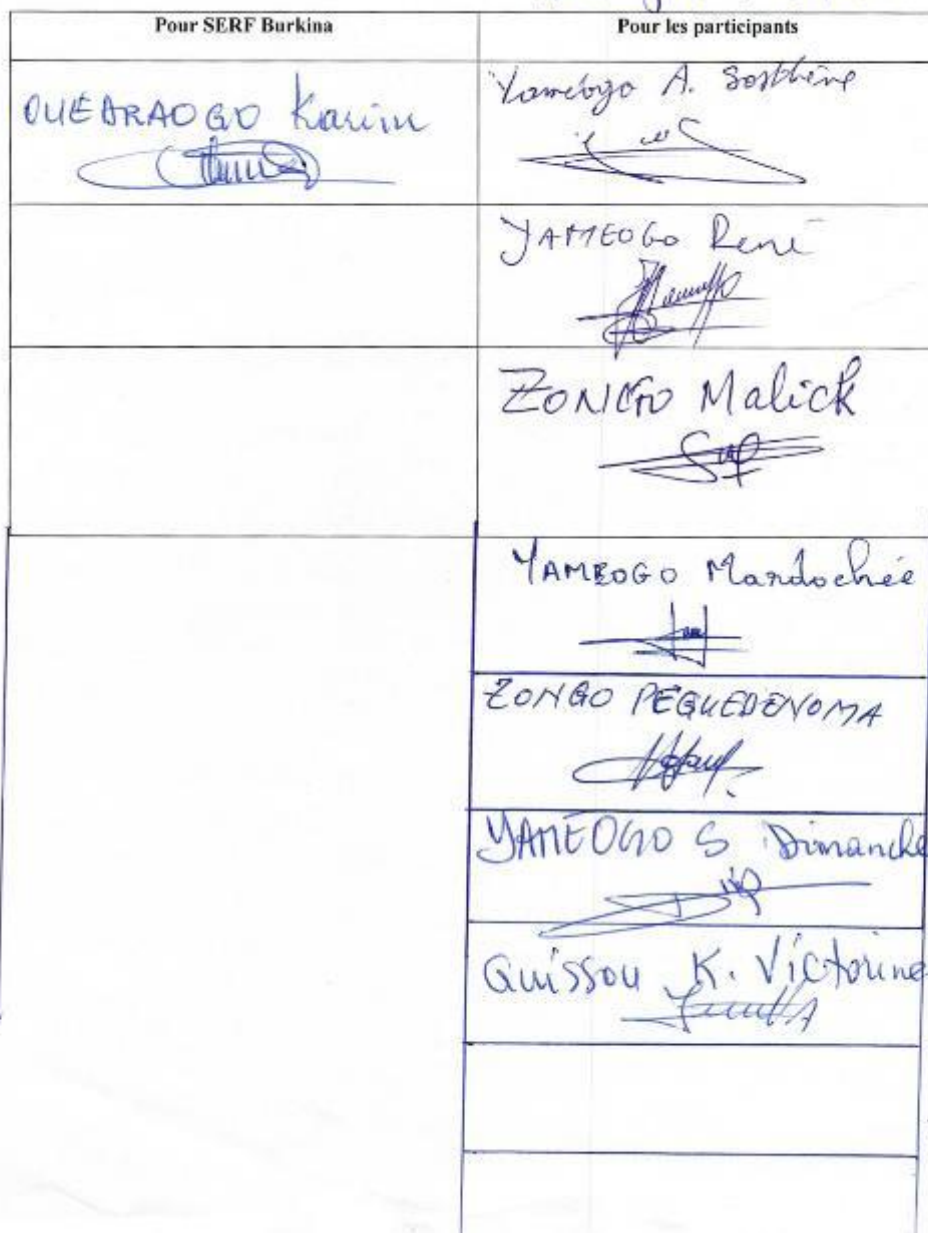 Pour SERF Burkina
Pour les participants
OUEDRAOGO Karim
Yaméogo A. Sosthène
YAMEOGO René
ZONGO Malick
YAMEOGO Mardochée
ZONGO PEGUEDENOMA
YAMEOGO S Dimanche
Guissou K. Victorine